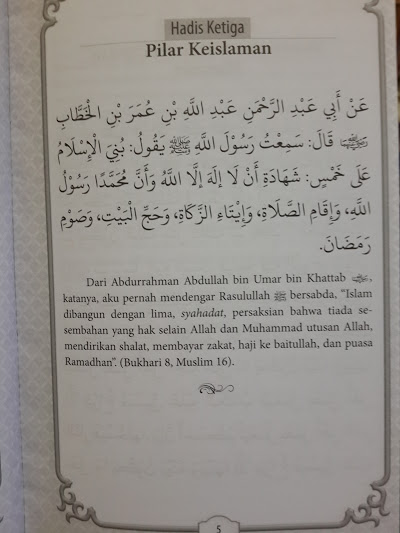 Hadis Ketiga
Pilar Keislaman
عَنْ أَبِي عَبْدِ الرَّحْمَنِ عَبْدِ اللَّهِ بْنِ عُمَرَ بْنِ الْخَطَّابِ
قَالَ: سَمِعْتُ رَسُوْلَ اللَّهِ ﷺ يَقُوْلُ: بُنِيَ الْإِسْلَامُ
عَلَى خَمْسٍ: شَهَادَةِ أَنْ لَا إِلَهَ إِلَّا اللَّهُ وَأَنَّ مُحَمَّدًا رَسُوْلُ
اللَّهِ، وَإِقَامِ الصَّلَاةِ، وَإِيْتَاءِ الزَّكَاةِ، وَحَجِّ الْبَيْتِ، وَصَوْمِ
رَمَضَانَ.
Dari Abdurrahman Abdullah bin Umar bin Khattab ,
katanya, aku pernah mendengar Rasulullah ﷺ bersabda, “Islam
dibangun dengan lima, syahadat, persaksian bahwa tiada se-
sembahan yang hak selain Allah dan Muhammad utusan Allah,
mendirikan shalat, membayar zakat, haji ke baitullah, dan puasa
Ramadhan”. (Bukhari 8, Muslim 16).
5